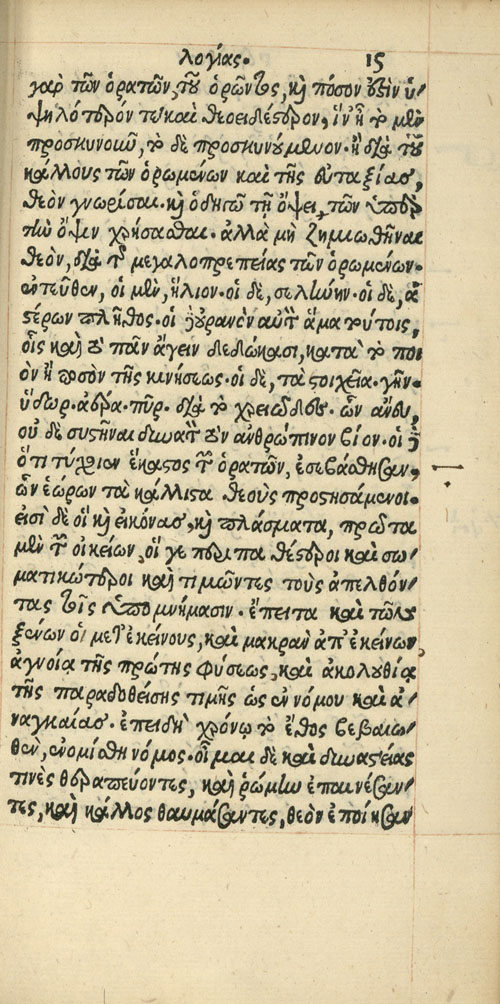 λογίας· 15
γὰρ τῶν ὁρατῶν, τοῦ ὁρῶντος, καὶ πόσον οὗτός ἐστιν ὑ-
ψηλότερόν τε καὶ θεοειδέστερον, ἵν' ᾖ τὸ μὲν
προσκυνοῦν, τὸ δὲ προσκυνούμενον· ἢ διὰ τοῦ
κάλλους τῶν ὁρωμένων καὶ τῆς εὐταξίας,
θεὸν γνωρίσαι· καὶ ὁδηγῷ τῇ ὄψει, τῶν ὑπὲρ
τὴν ὄψιν χρήσασθαι· ἀλλὰ μὴ ζημιωθῆναι
θεὸν, διὰ τῆς μεγαλοπρεπείας τῶν ὁρωμένων·
ἐντεῦθεν, οἱ μὲν, ἥλιον· οἱ δὲ, σελήνην· οἱ δὲ, ἀ
στέρων πλῆθος· οἱ δὲ οὐρανὸν αὐτὸν ἅμα τούτοις,
οἷς καὶ τὸ πᾶν ἄγειν δεδώκασι, κατὰ τὸ ποι
ὸν ἢ ποσὸν τῆς κινήσεως· οἱ δὲ, τὰ στοιχεῖα· γῆν·
ὕδωρ· ἀέρα· πῦρ· διὰ τὸ χρειῶδες· ὧν ἄνευ,
οὐδὲ συστῆναι δυνατὸν τὸν ἀνθρώπινον βίον· οἱ δὲ
ὅτι τύχοιεν ἕκαστος τῶν ὁρατῶν, ἐσεβάσθησαν,
ὧν ἑώρων τὰ κάλλιστα θεοὺς προστησάμενοι·
εἰσὶ δὲ οἳ καὶ εἰκόνας, καὶ πλάσματα, πρῶτα
μὲν τῶν οἰκείων, οἵ γε περιπαθέστεροι καὶ σω-
ματικώτεροι καὶ τιμῶντες τοὺς ἀπελθόν-
τας τοῖς ὑπομνήμασιν· ἔπειτα καὶ τῶν
ξένων οἱ μετ' ἐκείνους, καὶ μακρὰν ἀπ' ἐκείνων,
ἀγνοίᾳ τῆς πρώτης φύσεως, καὶ ἀκολουθίᾳ
τῆς παραδοθείσης τιμῆς ὡς ἐννόμου καὶ ἀ-
ναγκαίας· ἐπειδὴ χρόνῳ τὸ ἔθος βεβαιω-
θὲν, ἐνομίσθη νόμος· οἶμαι δὲ καὶ δυναστείας
τινὲς θεραπεύοντες, καὶ ῥώμην ἐπαινέσαν-
τες, καὶ κάλλος θαυμάσαντες, θεὸν ἐποίησαν